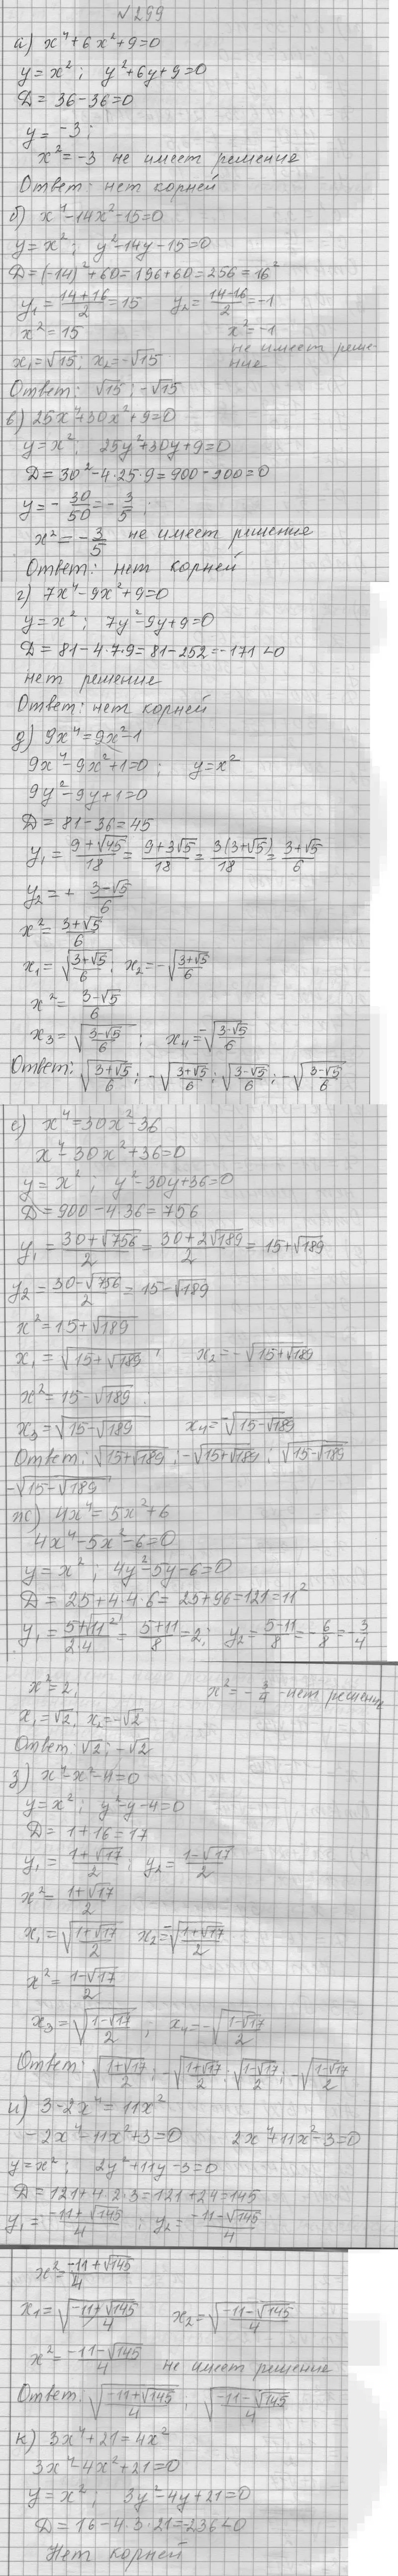 №299
а) x⁴+6x²+9=0
y=x²; y²+6y+9=0
D=36-36=0
y=-3;
x²=-3 не имеет решение
Ответ: нет корней
б) x⁴-14x²-15=0
y=x²; y²-14y-15=0
D=(-14)²+60=196+60=256=16²
y₁=(14+16)/2=15 y₂=(14-16)/2=-1
x²=15 x²=-1
x₁=√15; x₂=-√15 не имеет реше-
ние
Ответ: √15; -√15
в) 25x⁴+30x²+9=0
y=x²; 25y²+30y+9=0
D=30²-4·25·9=900-900=0
y=-30/50=-3/5;
x²=-3/5 не имеет решение
Ответ: нет корней
г) 7x⁴-9x²+9=0
y=x²; 7y²-9y+9=0
D=81-4·7·9=81-252=-171<0
нет решение
Ответ: нет корней
д) 9x⁴=9x²-1
9x⁴-9x²+1=0; y=x²
9y²-9y+1=0
D=81-36=45
y₁=(9+√45)/18=(9+3√5)/18=3(3+√5)/18=(3+√5)/6
y₂=+(3-√5)/6
x²=(3+√5)/6
x₁=√((3+√5)/6); x₂=-√((3+√5)/6)
x²=(3-√5)/6
x₃=√((3-√5)/6); x₄=-√((3-√5)/6)
Ответ: √((3+√5)/6); -√((3+√5)/6); √((3-√5)/6); -√((3-√5)/6)
е) x⁴=30x²-36
x⁴-30x²+36=0
y=x²; y²-30y+36=0
D=900-4·36=756
y₁=(30+√756)/2=(30+2√189)/2=15+√189
y₂=(30-√756)/2=15-√189
x²=15+√189
x₁=√(15+√189); x₂=-√(15+√189)
x²=15-√189
x₃=√(15-√189) x₄=-√(15-√189)
Ответ: √(15+√189); -√(15+√189); √(15-√189)
-√(15-√189)
ж) 4x⁴=5x²+6
4x⁴-5x²-6=0
y=x²; 4y²-5y-6=0
D=25+4·4·6=25+96=121=11²
y₁=(5+√11²)/(2·4)=(5+11)/8=2; y₂=(5-11)/8=-6/8=-3/4
x²=2; x²=-3/4 -нет решение
x₁=√2; x₂=-√2
Ответ: √2; -√2
з) x⁴-x²-4=0
y=x²; y²-y-4=0
D=1+16=17
y₁=(1+√17)/2; y₂=(1-√17)/2
x²=(1+√17)/2
x₁=√((1+√17)/2) x₂=-√((1+√17)/2)
x²=(1-√17)/2
x₃=√((1-√17)/2); x₄=-√((1-√17)/2)
Ответ: √((1+√17)/2); -√((1+√17)/2); √((1-√17)/2); -√((1-√17)/2)
и) 3-2x⁴=11x²
-2x⁴-11x²+3=0 2x⁴+11x²-3=0
y=x²; 2y²+11y-3=0
D=121+4·2·3=121+24=145
y₁=(-11+√145)/4; y₂=(-11-√145)/4
x²=(-11+√145)/4
x₁=√((-11+√145)/4) x₂=√((-11-√145)/4)
x²=(-11-√145)/4 не имеет решение
Ответ: √((-11+√145)/4); √((-11-√145)/4)
к) 3x⁴+21=4x²
3x⁴-4x²+21=0
y=x²; 3y²-4y+21=0
D=16-4·3·21=-236<0
Нет корней